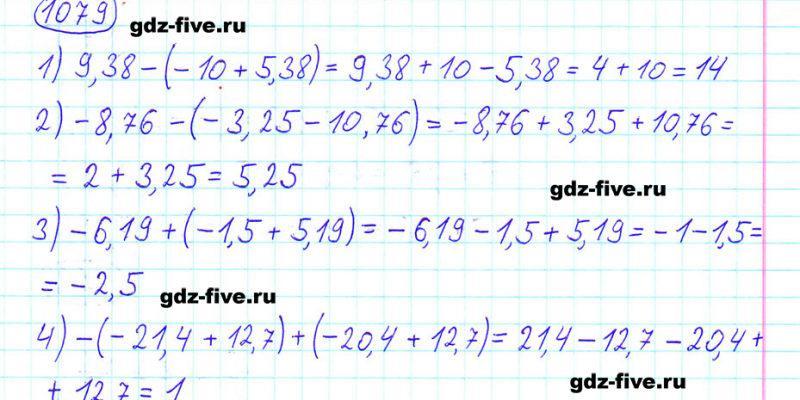 1079
gdz-five.ru
1) 9,38 - (- 10 + 5,38) = 9,38 + 10 - 5,38 = 4 + 10 = 14
2) - 8,76 - (- 3,25 - 10,76) = - 8,76 + 3,25 + 10,76 =
= 2 + 3,25 = 5,25
gdz-five.ru
3) - 6,19 + (- 1,5 + 5,19) = - 6,19 - 1,5 + 5,19 = - 1 - 1,5 =
= - 2,5
gdz-five.ru
4) - (- 21,4 + 12,7) + (- 20,4 + 12,7) = 21,4 - 12,7 - 20,4 +
+ 12,7 = 1
gdz-five.ru